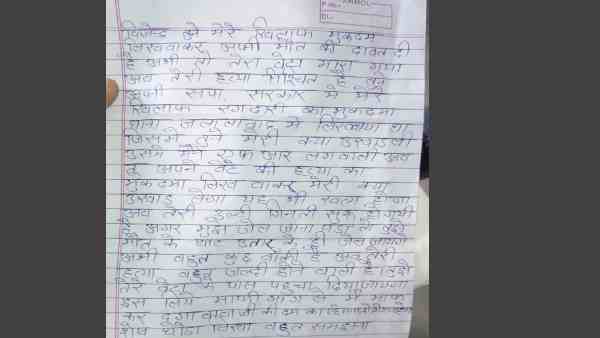 P.No.:
DL.:
विजेन्द्र तुने मेरे खिलाफ मुकदमा
लिखवाकर अपनी मौत को दावत दी
है अभी तो तेरा बेटा मारा गया
अब तेरी हत्या निश्चित है तुने
अपनी सपा सरकार में मेरे
खिलाफ रंगदारी का मुकदमा
थाना जलालाबाद में लिखवाया था
जिसमे तुने मेरी क्या उखाड़ ली
उसमे मैने एफ आर लगवाली अब
तू अपने बेटे की हत्या का
मुकदमा लिख वाकर मेरी क्या
उखाड़ लेगा यह भी खत्म होगा
अब तेरी उल्टी गिनती सुरू हो गयी
है अगर मुझे जेल जाना पड़ा तो तुझे
मौत के घाट उतार के ही जेल जाऊंगा
अभी बहुत कुछ बाकी है अब तेरी
हत्या बहुत जल्दी होने वाली है तुझे
तेरे बेटे के पास पहुचा दिया जायगा
इस लिये माफी मांग ले मै माफ
कर दूगा
शेष थोडा लिखा बहुत समझना